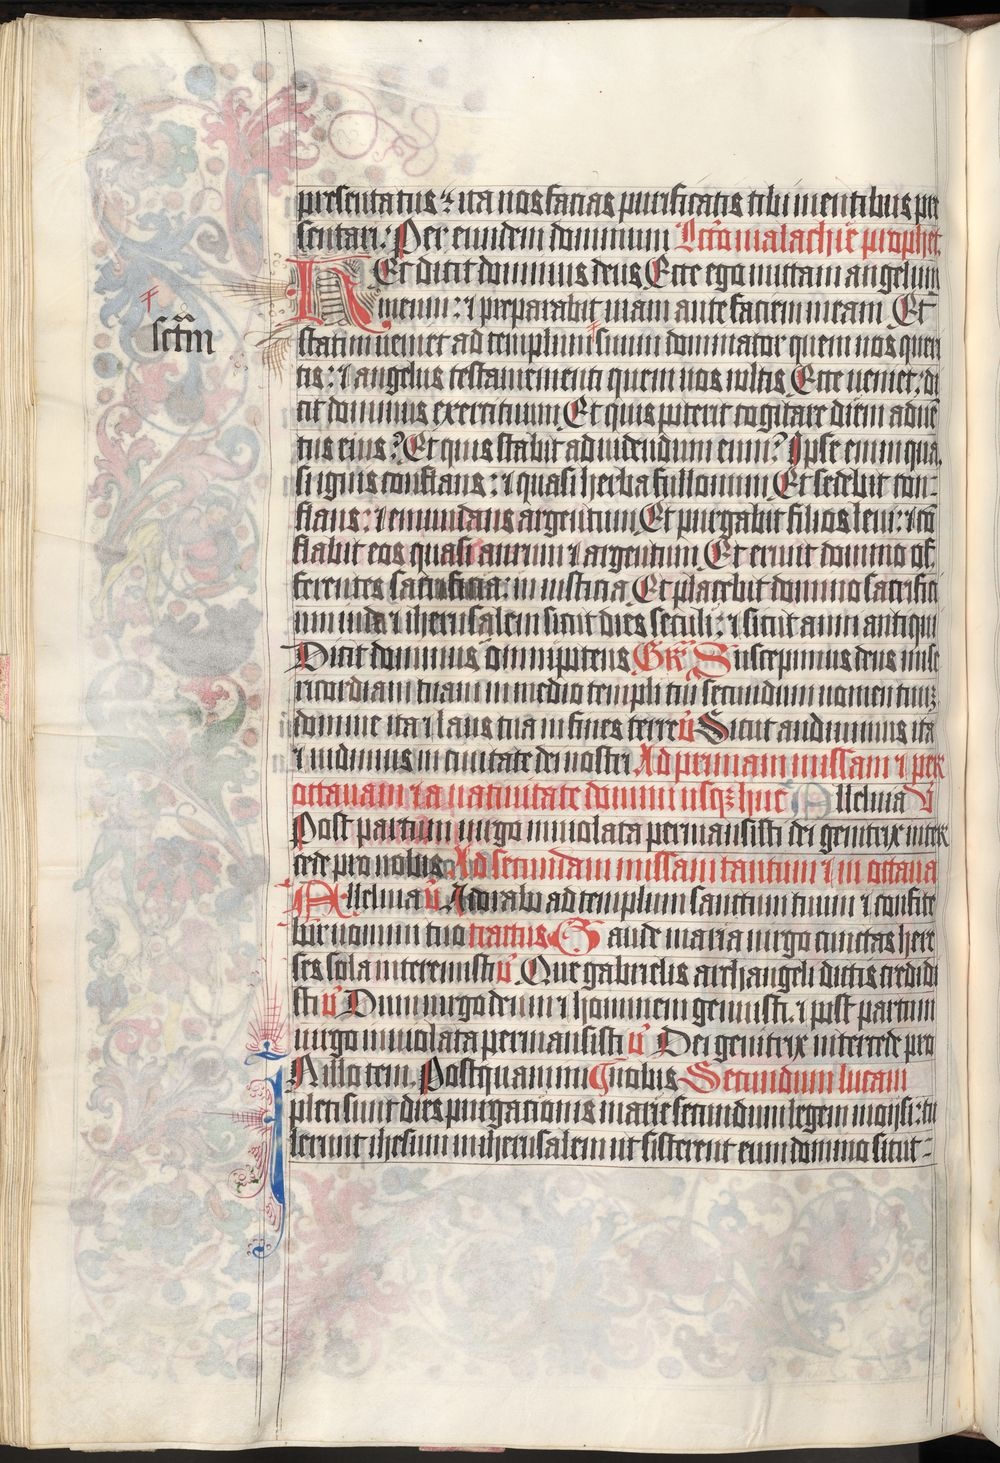 presentatus e(st) ita nos facias purificatis tibi mentibus pre
sentari: Per eundem dominum Lcō malachie prophet.
HEc dicit dominus deus Ecce ego mittam angelum
meum: ⁊ preparabit uiam ante faciem meam Et
sctm̄
statim ueniet ad templum suum dominator quem uos queri
tis: ⁊ angelus testamementi quem uos uultis Ecce ueniet: di
cit dominus exercituum Et quis poterit cogitare diem aduē
tus eius? Et quis stabit ad uidendum eum? Ipse enim qua
si ignis conflans: ⁊ quasi herba fullonum Et sedebit con-
flans: ⁊ emundans argentum Et purgabit filios leui: ⁊ cō
flabit eos quasi aurum ⁊ argentum Et erunt domino of
ferentes sacrificia: in iusticia Et placebit domino sacrifici
um iuda ⁊ iherusalem sicut dies seculi: ⁊ sicut anni antiqui
Dicit dominus omnipotens Gr̄ Suscepimus deus mise
ricordiam tuam in medio templi tui secundum nomen tuuȝ
domine ita ⁊ laus tua in fines terre v̄ Sicut audiuimus ita
⁊ uidimus in ciuitate dei nostri Ad primam missam ⁊ per
octauam ⁊ a natiuitate domini usqȝ huc Alleluia v̄
Post partum uirgo inuiolata permansisti dei genitrix inter
cede pro nobis Ad secundam missam tantum ⁊ in octaua
Alleluia v̄ Adorabo ad templum sanctum tuum ⁊ confite
bor nomini tuo tractus Gaude maria uirgo cunctas here
ses sola interemisti v̄ Que gabrielis archangeli dictis credidi
sti v̄ Dum uirgo deum ⁊ hominem genuisti. ⁊ post partum
uirgo inuiolata permansisti v̄ Dei genitrix intercede pro
In illo tem. Postquam im nobis Secundum lucam
pleti sunt dies purgationis marie secundum legem moysi: tu
lerunt ihesum in iherusalem ut sisterent eum domino sicut-